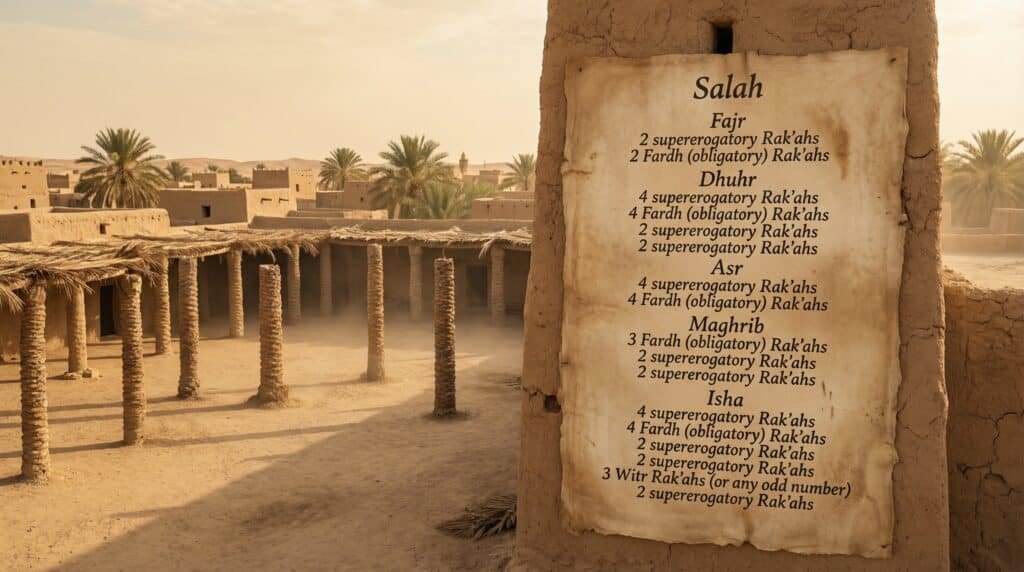 Salah
Fajr
2 supererogatory Rak'ahs
2 Fardh (obligatory) Rak'ahs
Dhuhr
4 supererogatory Rak'ahs
4 Fardh (obligatory) Rak'ahs
2 supererogatory Rak'ahs
2 supererogatory Rak'ahs
Asr
4 supererogatory Rak'ahs
4 Fardh (obligatory) Rak'ahs
Maghrib
3 Fardh (obligatory) Rak'ahs
2 supererogatory Rak'ahs
2 supererogatory Rak'ahs
Isha
4 supererogatory Rak'ahs
4 Fardh (obligatory) Rak'ahs
2 supererogatory Rak'ahs
2 supererogatory Rak'ahs
3 Witr Rak'ahs (or any odd number)
2 supererogatory Rak'ahs